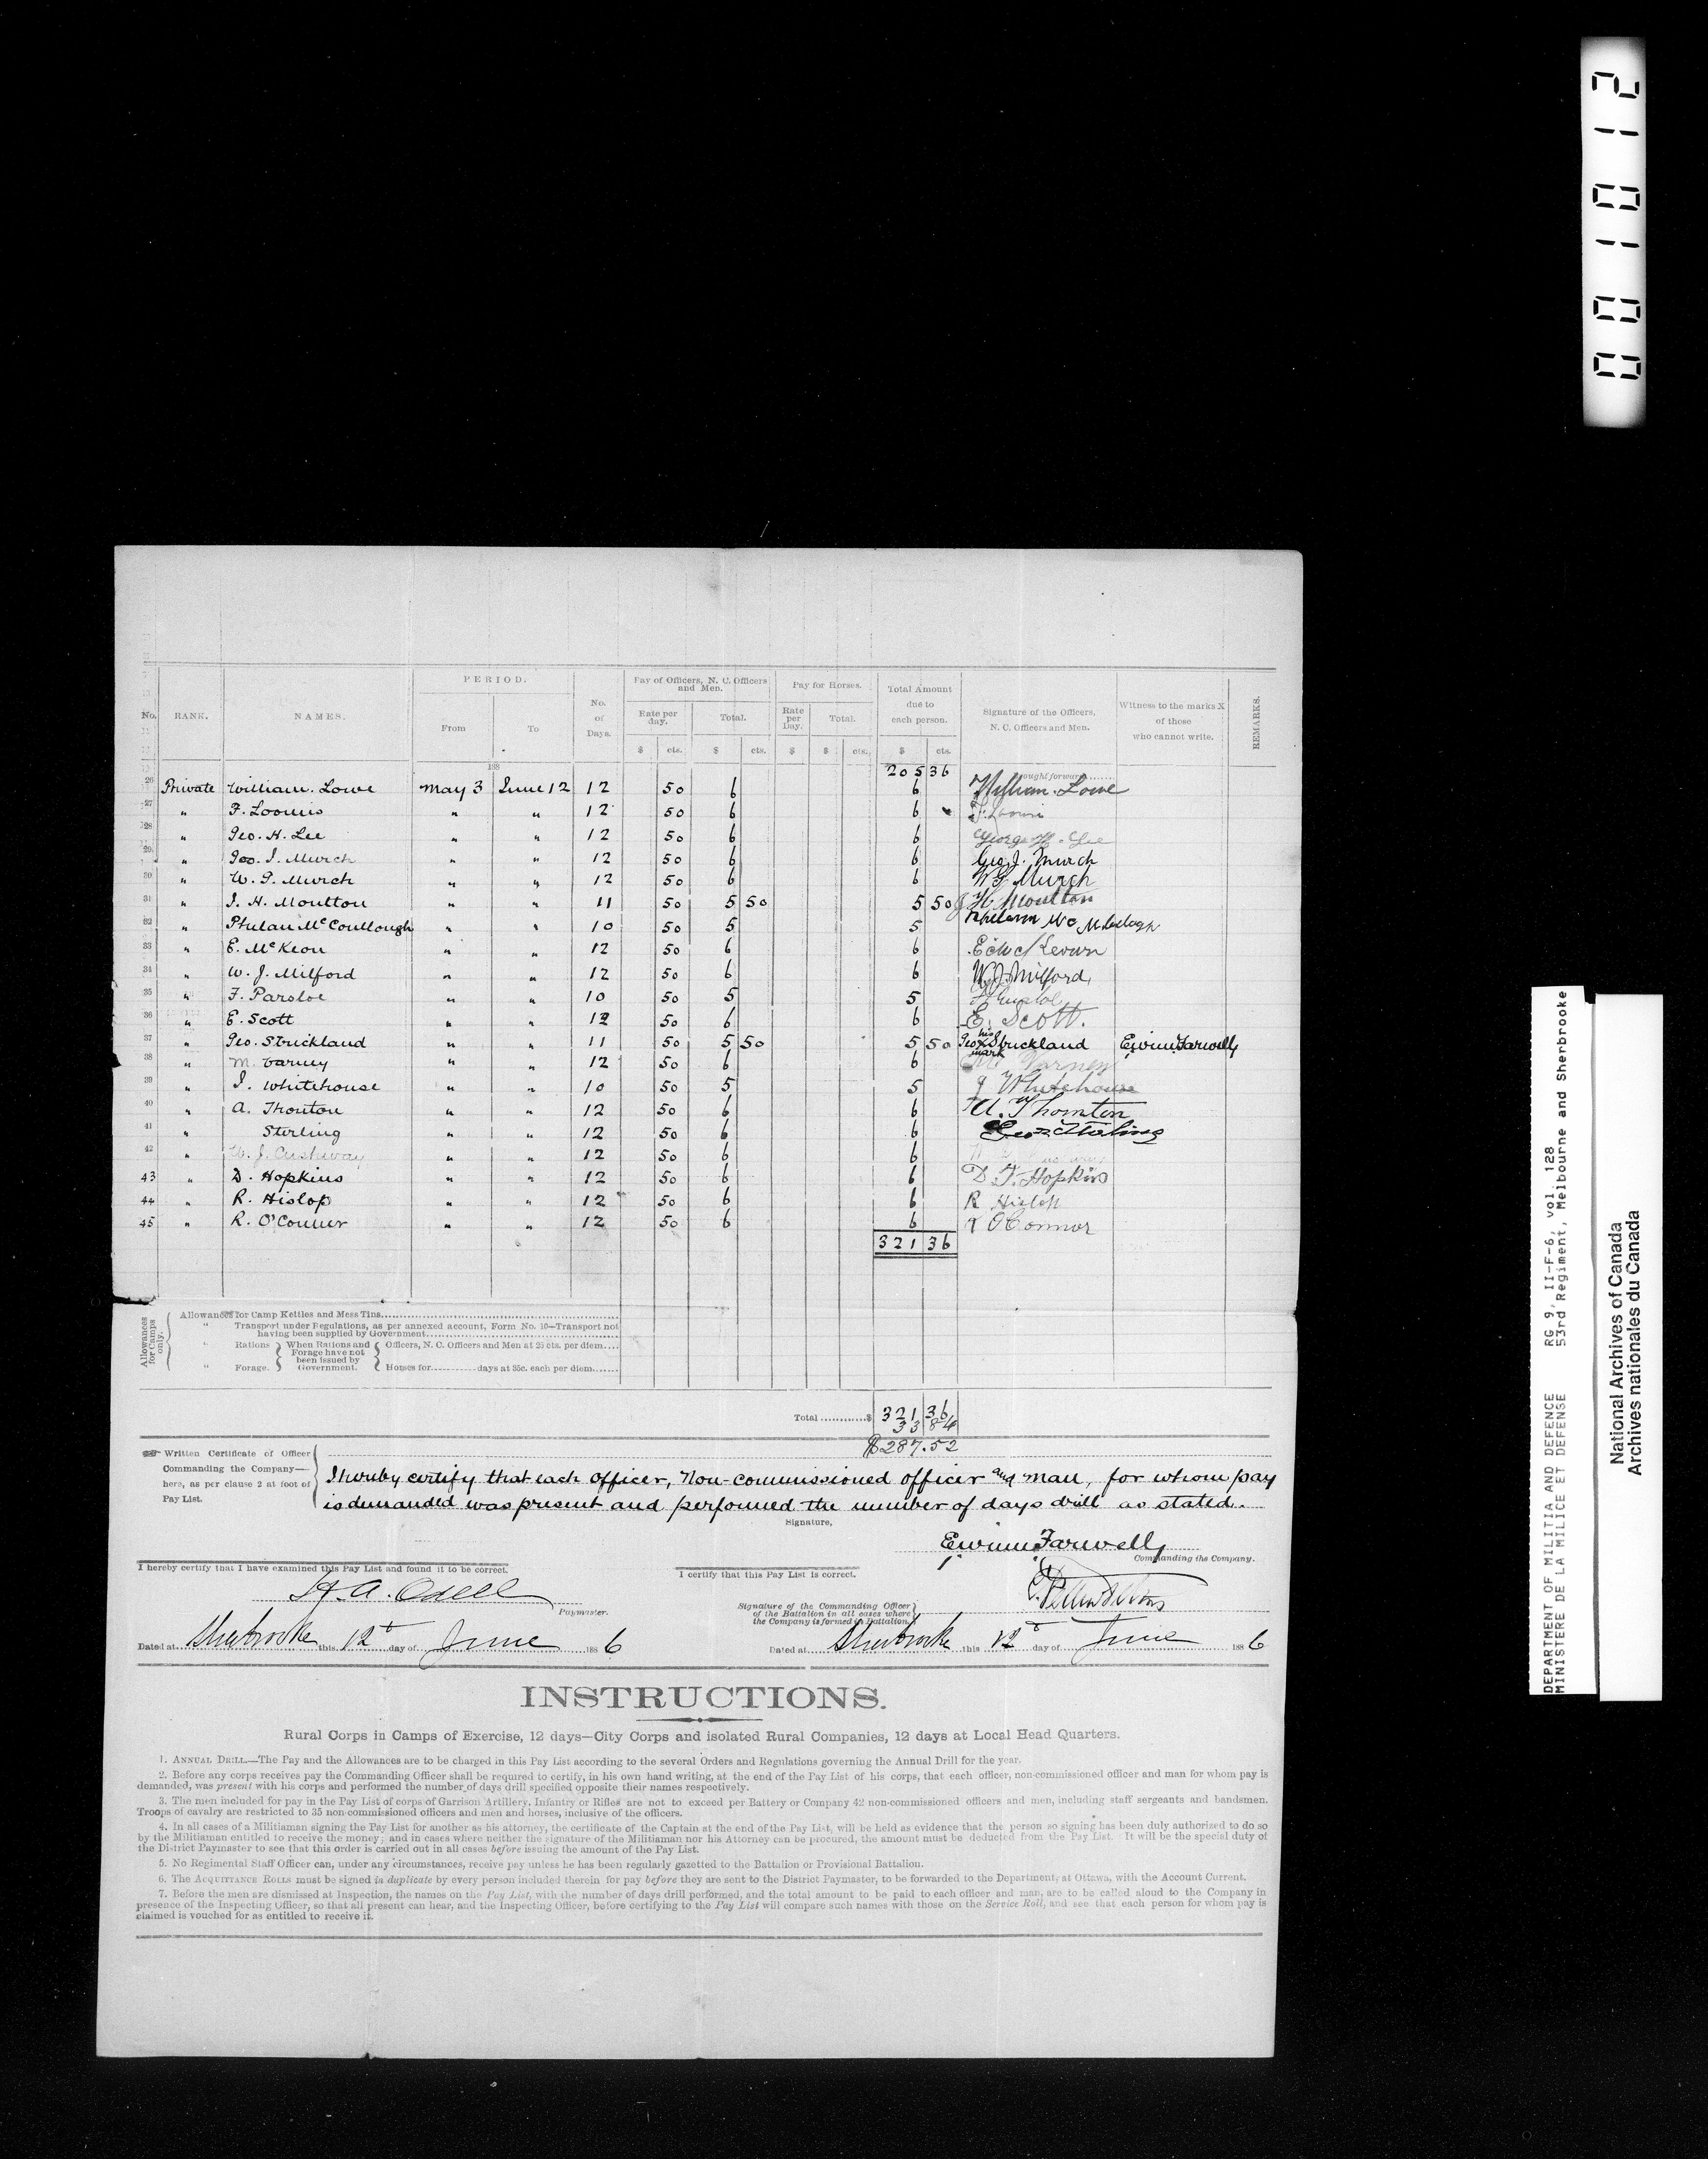 001012
PERIOD.
Pay of Officers, N. C. Officers and Men.
Pay for Horses.
Total Amount due to each person.
No. RANK. NAMES. From To No. of Days. Rate per day. Total. Rate per Day. Total. Signature of the Officers, N. C. Officers and Men. Witness to the marks X of those who cannot write. REMARKS.
$ cts. $ cts. $ $ cts. $ cts.
188
205 36 ought forward
26 Private William. Lowe May 3 June 12 12 50 6 6 William. Lowe
27 " F. Loomis " " 12 50 6 6 F. Loomis
28 " Geo. H. Lee " " 12 50 6 6 George H. Lee
29 " Geo. J. Murch " " 12 50 6 6 Geo J. Murch
30 " W. G. Murch " " 12 50 6 6 W G Murch
31 " J. H. Moulton " " 11 50 5 50 5 50 J H Moulton
32 " Phelan McCoullough " " 10 50 5 5
33 " E. McKeon " " 12 50 6 6
34 " W. J. Milford " " 12 50 6 6 W. J. Milford
35 " F. Parsloe " " 10 50 5 5
36 " E. Scott " " 12 50 6 6 E. Scott.
37 " Geo. Strickland " " 11 50 5 50 5 50 Geo his X mark Strickland Erwin Farwell
38 " M. Varney " " 12 50 6 6 M. Varney
39 " J. Whitehouse " " 10 50 5 5 J Whitehouse
40 " A. Thonton " " 12 50 6 6 A. Thornton
41 " Sterling " " 12 50 6 6 Geo Sterling
42 " W. J. Cushway " " 12 50 6 6
43 " D. Hopkins " " 12 50 6 6 D. F. Hopkins
44 " R. Hislop " " 12 50 6 6 R Hislop
45 " R. O'Conner " " 12 50 6 6 R O'Connor
321 36
Allowances for Camps only.
Allowances for Camp Kettles and Mess Tins
" Transport under Regulations, as per annexed account, Form No. 10—Transport not having been supplied by Government
" Rations When Rations and Forage have not been issued by Government. Officers, N. C. Officers and Men at 25 cts. per diem
" Forage. Horses for days at 35c. each per diem
Total $ 321 36
33 84
$287.52
Written Certificate of Officer Commanding the Company—here, as per clause 2 at foot of Pay List.
I hereby certify that each officer, Non-commissioned officer and man, for whom pay
is demanded was present and performed the number of days drill as stated.
Signature,
Erwin Farwell
Commanding the Company.
I hereby certify that I have examined this Pay List and found it to be correct.
I certify that this Pay List is correct.
Odell
Paymaster.
Signature of the Commanding Officer of the Battalion in all cases where the Company is formed in Battalion.
Dated at Sherbrooke this 12th day of June 1886
Dated at Sherbrooke this 12th day of June 1886
INSTRUCTIONS.
Rural Corps in Camps of Exercise, 12 days—City Corps and isolated Rural Companies, 12 days at Local Head Quarters.
1. ANNUAL DRILL.—The Pay and the Allowances are to be charged in this Pay List according to the several Orders and Regulations governing the Annual Drill for the year.
2. Before any corps receives pay the Commanding Officer shall be required to certify, in his own hand writing, at the end of the Pay List of his corps, that each officer, non-commissioned officer and man for whom pay is
demanded, was present with his corps and performed the number of days drill specified opposite their names respectively.
3. The men included for pay in the Pay List of corps of Garrison Artillery, Infantry or Rifles are not to exceed per Battery or Company 42 non-commissioned officers and men, including staff sergeants and bandsmen.
Troops of cavalry are restricted to 35 non-commissioned officers and men and horses, inclusive of the officers.
4. In all cases of a Militiaman signing the Pay List for another as his attorney, the certificate of the Captain at the end of the Pay List, will be held as evidence that the person so signing has been duly authorized to do so
by the Militiaman entitled to receive the money; and in cases where neither the signature of the Militiaman nor his Attorney can be procured, the amount must be deducted from the Pay List. It will be the special duty of
the District Paymaster to see that this order is carried out in all cases before issuing the amount of the Pay List.
5. No Regimental Staff Officer can, under any circumstances, receive pay unless he has been regularly gazetted to the Battalion or Provisional Battalion.
6. The ACQUITTANCE ROLLS must be signed in duplicate by every person included therein for pay before they are sent to the District Paymaster, to be forwarded to the Department, at Ottawa, with the Account Current.
7. Before the men are dismissed at Inspection, the names on the Pay List, with the number of days drill performed, and the total amount to be paid to each officer and man, are to be called aloud to the Company in
presence of the Inspecting Officer, so that all present can hear, and the Inspecting Officer, before certifying to the Pay List will compare such names with those on the Service Roll, and see that each person for whom pay is
claimed is vouched for as entitled to receive it.
DEPARTMENT OF MILITIA AND DEFENCE RG 9, II-F-6, vol. 128
MINISTERE DE LA MILICE ET DEFENSE 53rd Regiment, Melbourne and Sherbrooke
National Archives of Canada
Archives nationales du Canada